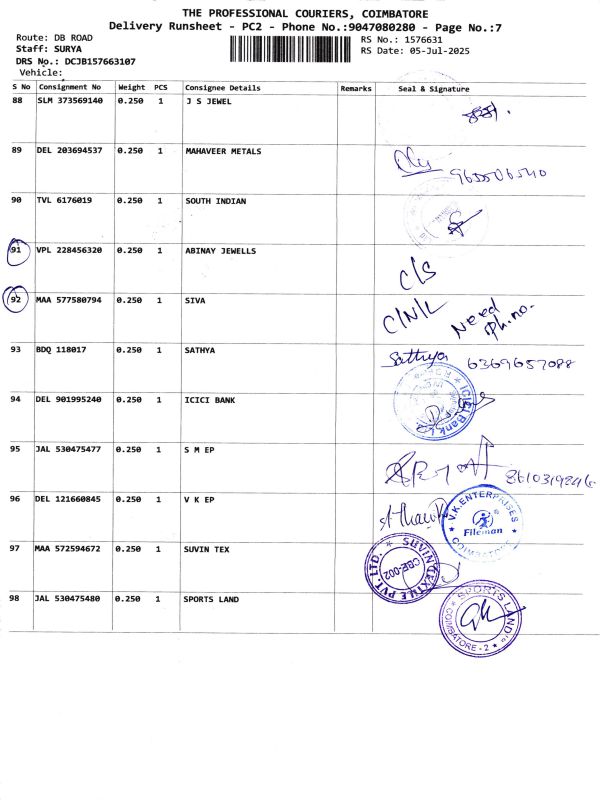 THE PROFESSIONAL COURIERS, COIMBATORE
Delivery Runsheet - PC2 - Phone No.:9047080280 - Page No.:7
Route: DB ROAD RS No.: 1576631
Staff: SURYA RS Date: 05-Jul-2025
DRS No.: DCJB157663107
Vehicle:
S No Consignment No Weight PCS Consignee Details Remarks Seal & Signature
88 SLM 373569140 0.250 1 J S JEWEL
89 DEL 203694537 0.250 1 MAHAVEER METALS
9655506540
90 TVL 6176019 0.250 1 SOUTH INDIAN
91 VPL 228456320 0.250 1 ABINAY JEWELLS
C/S
92 MAA 577580794 0.250 1 SIVA
C/N/L Need ph.no.
93 BDQ 118017 0.250 1 SATHYA
Sathya 6369657088
94 DEL 901995240 0.250 1 ICICI BANK
ICICI Bank
95 JAL 530475477 0.250 1 S M EP
96 DEL 121660845 0.250 1 V K EP
V.K.ENTERPRISES
Fileman
COIMBATORE
97 MAA 572594672 0.250 1 SUVIN TEX
SUVIN TEXTILE PVT. LTD.
CBE-002
98 JAL 530475480 0.250 1 SPORTS LAND
SPORTS LAND
COIMBATORE - 2